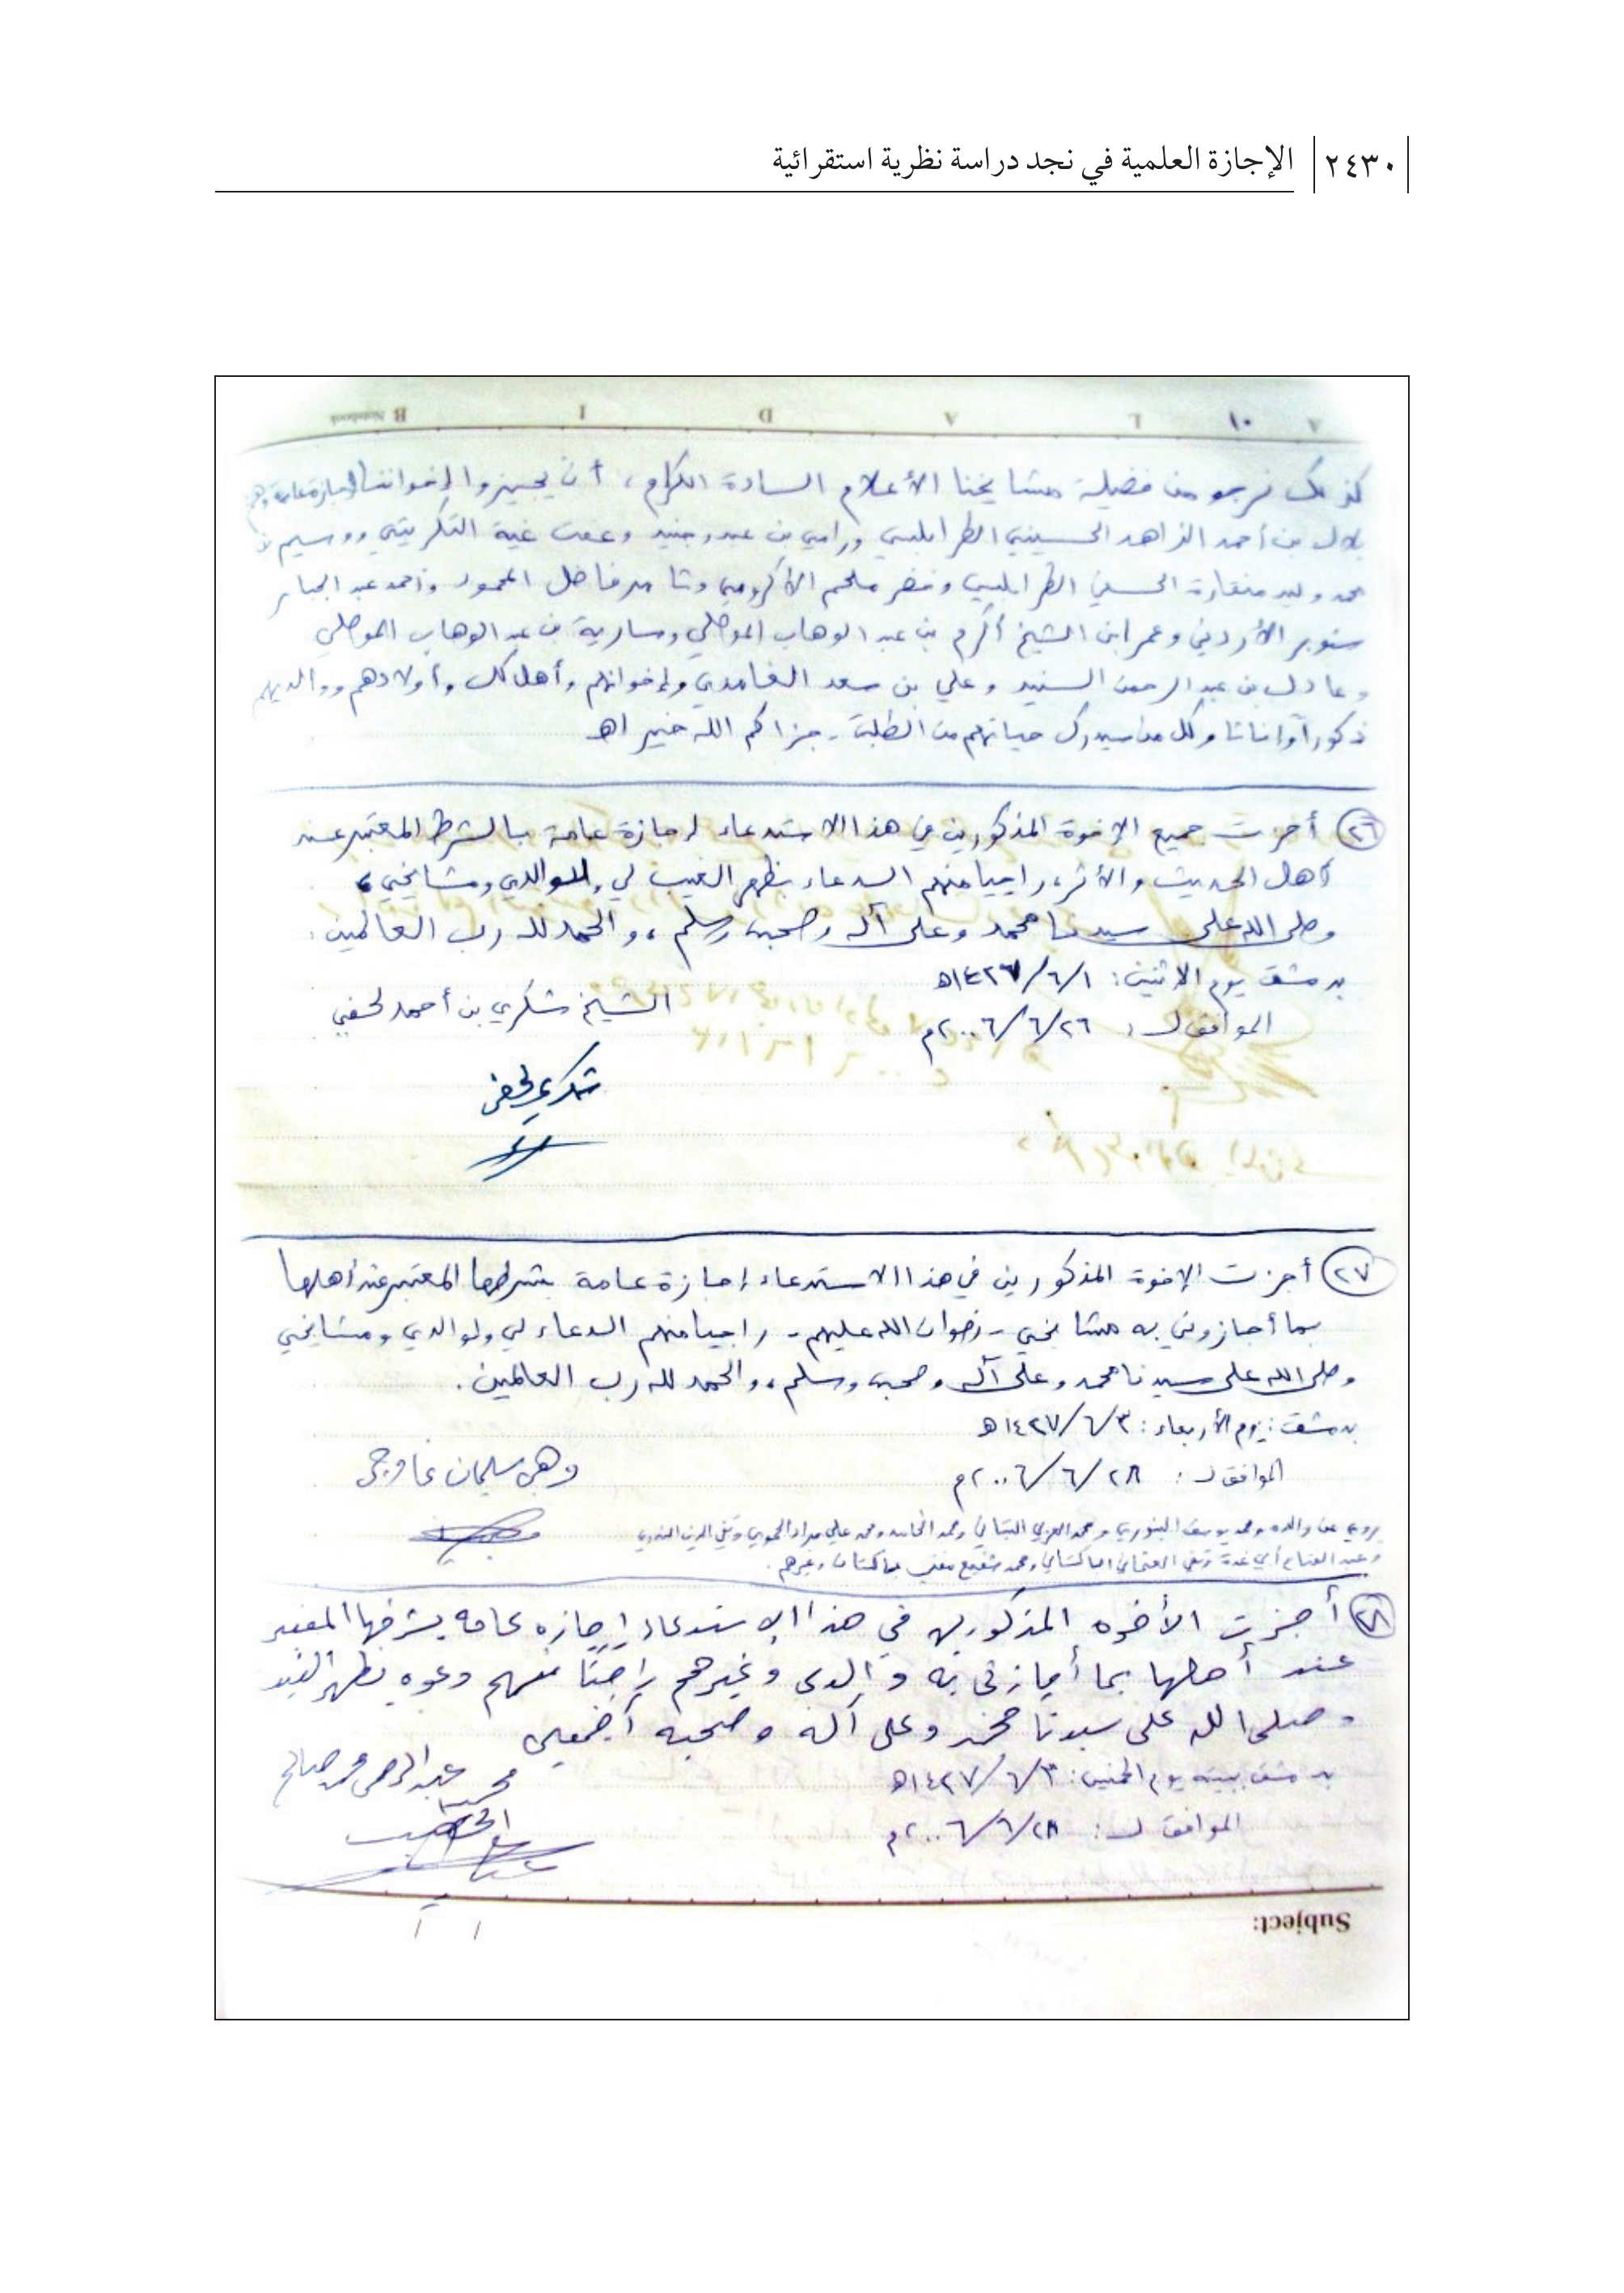 ٢٤٣٠ الإجازة العلمية في نجد دراسة نظرية استقرائية
A ١٠ L A D I B Notebook
كذلك نرجو من فضيلة مشايخنا الأعلام السادة الكرام، أن يجيزوا لإخواننا إجازة عامة وهم
بلال بن أحمد الزاهد الحسيني الطرابلسي ورامي بن وعفت التكريتي ووسيم بن
محمد وليد منقارة الحسيني الطرابلسي وخضر ملحم وثامر فاضل المحمود وأحمد عبد الجبار
سنوبر الأردني وعمر ابن الشيخ أكرم بن عبد الوهاب الموصلي وسارية بن عبد الوهاب الموصلي
وعادل بن عبد الرحمن السنيد وعلي بن سعد الغامدي وإخوانهم وأهل كل وأولادهم ووالديهم
ذكوراً وإناثا وكل من سيدرك حياتهم من الطلبة - جزاكم الله خير اهـ
٢٦ أجزت جميع الإخوة المذكورين في هذا الاستدعاء إجازة عامة بالشرط المعتبر عند
أهل الحديث والأثر، راجيا منهم الدعاء بظهر الغيب لي ولوالدي ومشايخي،
وصلى الله على سيدنا محمد وعلى آله وصحبه وسلم، والحمد لله رب العالمين.
بدمشق يوم الاثنين: ١/٦/١٤٢٧هـ
الموافق لـ: ٢٦/٦/٢٠٠٦م
الشيخ شكري بن أحمد لحفي
شكري لحفي
٢٧ أجزت الإخوة المذكورين في هذا الاستدعاء إجازة عامة بشرطها المعتبر عند أهلها
بما أجازوني به مشايخي - رضوان الله عليهم - راجيا منهم الدعاء لي ولوالدي ومشايخي
وصلى الله على سيدنا محمد وعلى آله وصحبه وسلم، والحمد لله رب العالمين.
بدمشق: يوم الأربعاء: ٣/٦/١٤٢٧هـ
الموافق لـ: ٢٨/٦/٢٠٠٦م
وهبي سليمان غاوجي
يروي عن والده ومحمد يوسف البنوري ومحمد العربي التباني ومحمد الحامد ومحمد علي مراد الحموي وتقي الدين الندوي
وعبد الفتاح أبي غدة وتقي العثماني الباكستاني ومحمد شفيع مفتي باكستان وغيرهم.
٢٨ أجزت الأخوه المذكورين في هذا الإستدعاء إجازه عامه بشرطها المعتبر
عند أهلها بما أجازني به والدي وغيرهم راجيًا منهم دعوه بظهر الغيب
وصلى الله على سيدنا محمد وعلى آله وصحبه أجمعين
بدمشق ببيته يوم الخميس: ٣/٦/١٤٢٧هـ
الموافق لـ: ٢٨/٦/٢٠٠٦م
عبد الرحمن محمد صالح
Subject: